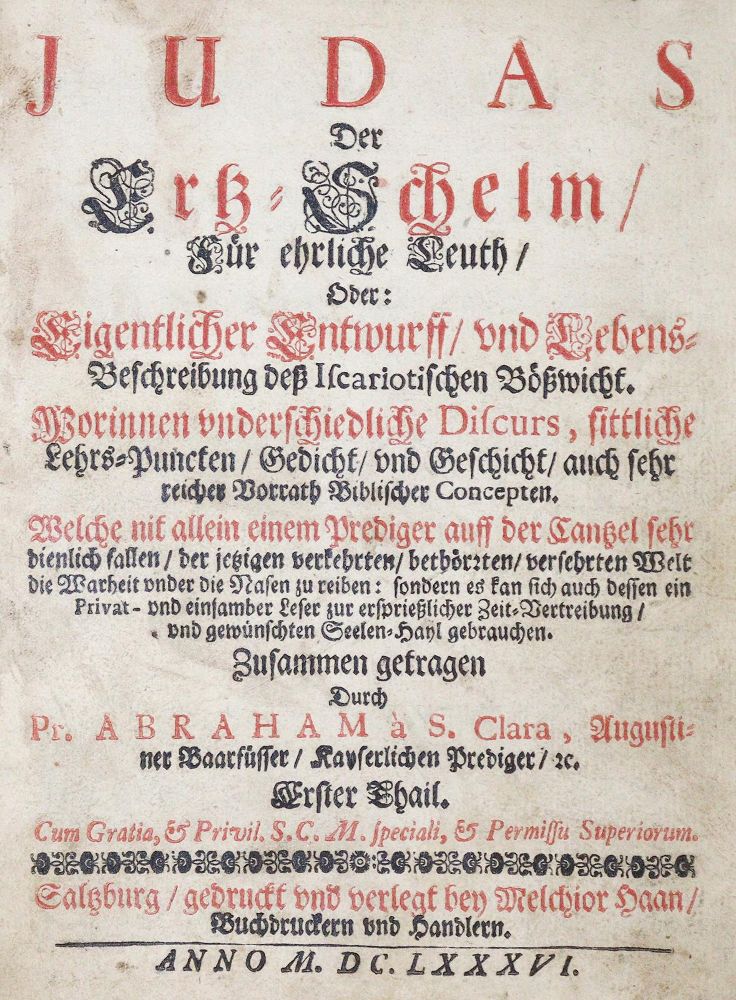 JUDAS
Der
Ertz-Schelm /
Für ehrliche Leuth /
Oder:
Eigentlicher Entwurff / vnd Lebens-
Beschreibung deß Iscariotischen Bößwicht.
Worinnen vnderschiedliche Discurs, sittliche
Lehrs-Puncten / Gedicht / vnd Geschicht / auch sehr
reicher Vorrath Biblischer Concepten.
Welche nit allein einem Prediger auff der Cantzel sehr
dienlich fallen / der jetzigen verkehrten / bethörzten / versehrten Welt
die Warheit vnder die Nasen zu reiben: sondern es kan sich auch dessen ein
Privat- vnd einsamber Leser zur ersprießlicher Zeit-Vertreibung /
vnd gewünschten Seelen-Hayl gebrauchen.
Zusammen getragen
Durch
Pr. ABRAHAM à S. Clara, Augusti-
ner Baarfüsser / Kayserlichen Prediger / ꝛc.
Erster Thail.
Cum Gratia, & Privil. S. C. M. speciali, & Permissu Superiorum.
Saltzburg / gedruckt vnd verlegt bey Melchior Haan /
Buchdruckern vnd Handlern.
ANNO M. DC. LXXXVI.